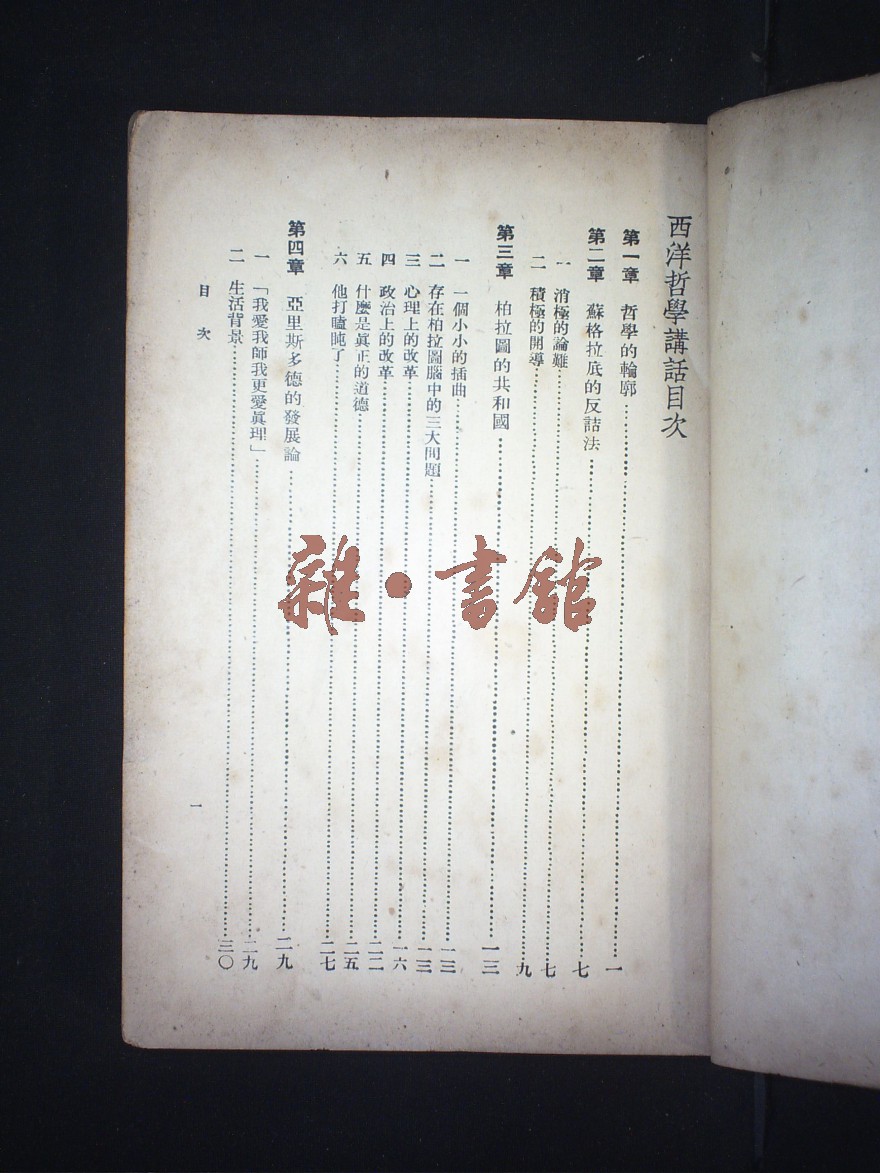 西洋哲學講話目次
第一章 哲學的輪廓……一
第二章 蘇格拉底的反詰法……七
一 消極的論難……七
二 積極的開導……九
第三章 柏拉圖的共和國……一三
一 一個小小的插曲……一三
二 存在柏拉圖腦中的三大問題……一三
三 心理上的改革……一六
四 政治上的改革……二二
五 什麼是眞正的道德……二五
六 他打瞌盹了……二七
第四章 亞里斯多德的發展論……二九
一 「我愛我師我更愛眞理」……二九
二 生活背景……三〇
目次 一
雜·書館